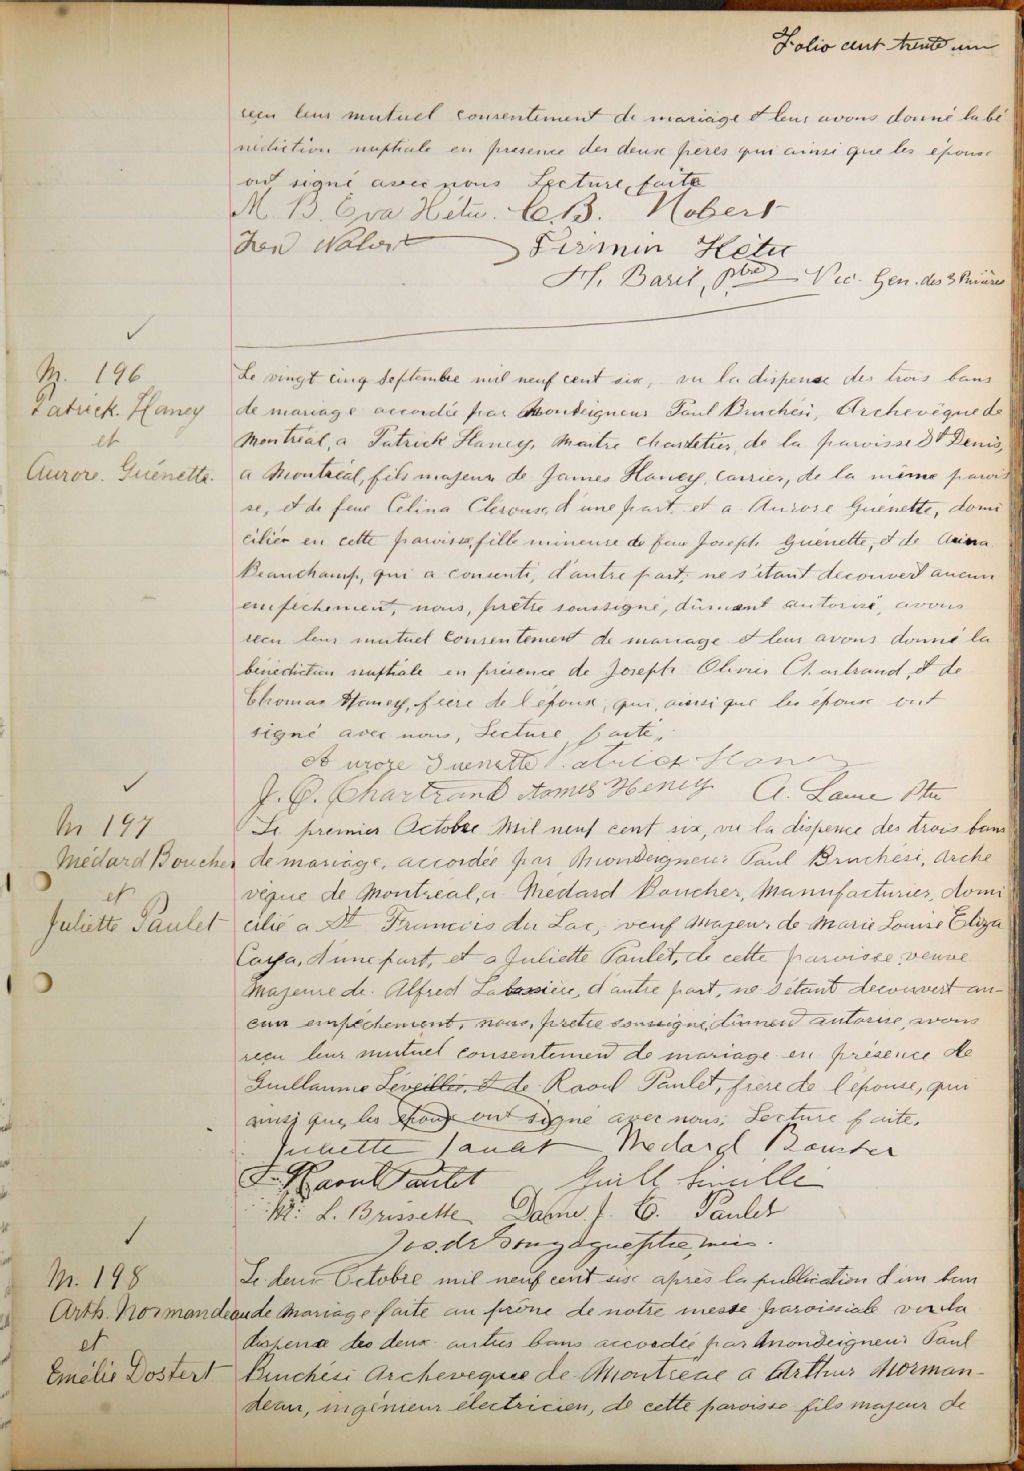 Folio cent trente un
reçu leur mutuel consentement de mariage et leur avons donné la bé
nédiction nuptiale en presence des deux peres qui ainsi que les époux
ont signé avec nous Lecture faite
M. B. Eva Hétu. C. B. Nobert
Fred Nobert Firmin Hétu
H. Baril, ptre Vic. Gen. des 3 Rivières
M. 196
Patrick Haney
et
Aurore Guénette.
Le vingt cinq Septembre mil neuf cent six, vu la dispense des trois bans
de mariage accordée par Monseigneur Paul Bruchési, Archevêque de
Montréal, a Patrick Haney, Maitre charretier, de la paroisse St Denis,
a Montréal, fils majeur de James Haney, carrier, de la même parois
se, et de feue Célina Cleroux, d'une part, et a Aurore Guénette, domi
ciliée en cette paroisse, fille mineure de feu Joseph Guénette, et de
Beauchamp, qui a consenti, d'autre part, ne s'étant decouvert aucun
empêchement, nous, prêtre soussigné, dûment autorisé, avons
recu leur mutuel consentement de mariage et leur avons donné la
bénédiction nuptiale en présence de Joseph Olivier Chartrand, et de
Thomas Haney, frère de l'époux, qui, ainsi que les époux ont
signé avec nous, Lecture faite,
Aurore Guenette Patrick Haney
J. O. Chartrand Heney A. Ptre
M 197
Médard Boucher
et
Juliette Paulet
Le premier Octobre Mil neuf cent six, vu la dispence des trois bans
de mariage, accordée par Monseigneur Paul Bruchési, Arche
vêque de Montréal, a Médard Boucher, Manufacturier, domi
cilié a St François du Lac, veuf Majeur de Marie Louise Eliza
Caya, d'une part, et a Juliette Paulet, de cette paroisse veuve
majeure de Alfred d'autre part, ne s'étant decouvert au-
cun empêchement, nous, pretre soussigné, dûment autorisé, avons
recu leur mutuel consentement de mariage en présence de
Guillaume Léveillée, et de Raoul Paulet, frère de l'épouse, qui
ainsi que les époux ont signé avec nous. Lecture faite.
Juliette Paulet Médard Boucher
Raoul Paulet Guill Léveillé
L. Brissette Dame J. E. Paulet
Jos. de Gonzague ptre, miss.
M. 198
Arth. Normandeau
et
Emélie Dostert
Le deux Octobre mil neuf cent six après la publication d'un ban
de mariage faite au prône de notre messe paroissiale vu la
dispense des deux autres bans accordée par Monseigneur Paul
Bruchési Archevêque de Montréal a Arthur Norman-
deau, ingénieur électricien, de cette paroisse fils majeur de